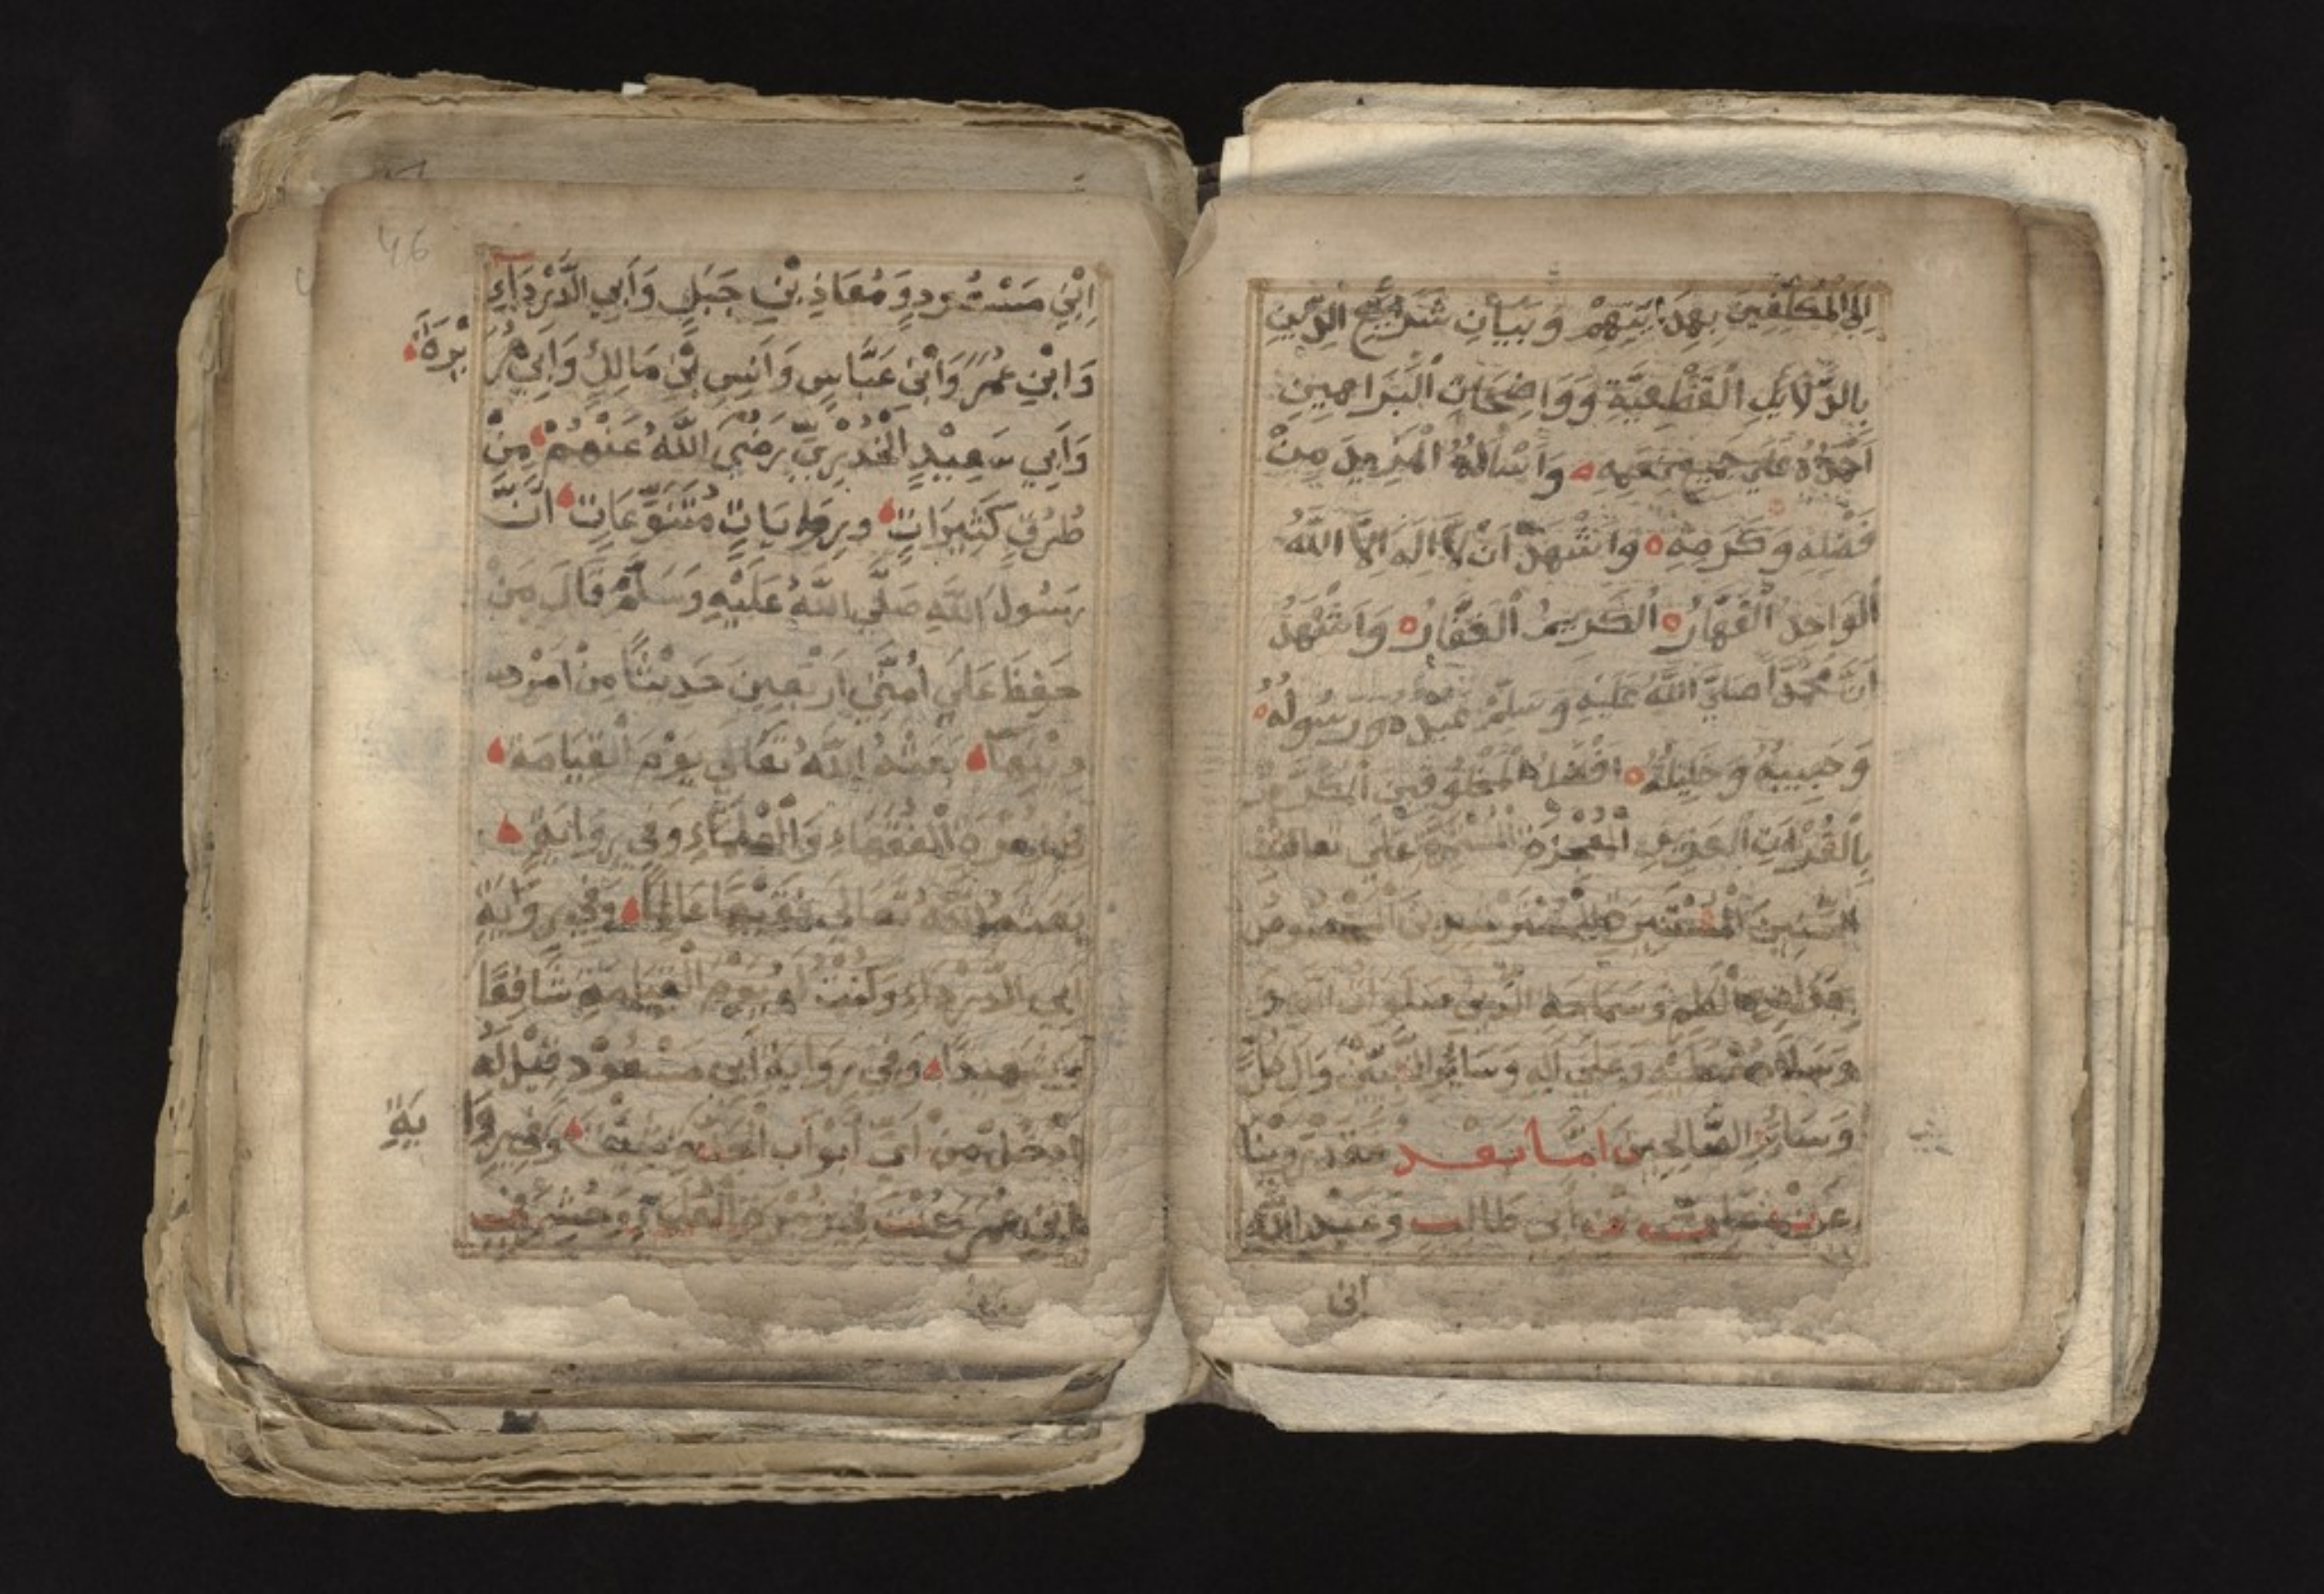 اِلَى الْمُكَلَّفِينَ بِهِدَايَتِهِمْ وَبَيَانِ شَرَائِعِ الدِّينِ
بِالدَّلَائِلِ الْقَطْعِيَّةِ وَوَاضِحَاتِ الْبَرَاهِينِ
اَحْمَدُهُ عَلَي جَمِيعِ نِعَمِهِ وَاَسْاَلُهُ الْمَزِيدَ مِنْ
فَضْلِهِ وَكَرَمِهِ وَاَشْهَدُ اَنْ لَا اِلَهَ اِلَّا اللهُ
الْوَاحِدُ الْقَهَّارُ الْكَرِيمُ الْغَفَّارُ وَاَشْهَدُ
اَنَّ مُحَمَّداً صَلَّي اللهُ عَلَيْهِ وَسَلَّمْ عَبْدُهُ وَرَسُولُهُ
وَحَبِيبُهُ وَخَلِيلُهُ اَفْضَلُ الْمَخْلُوقِينَ الْمُكَرَّمُ
بِالْقُرْآنِ الْعَزِيزِ الْمُعْجِزَةِ الْمُسْتَمِرَّةِ عَلَي تَعَاقُبِ
السِّنِينَ
وَسَمَاحَةِ الدِّينِ صَلَوَاتُ اللهِ
وَسَلَامُهُ عَلَيْهِ وَعَلَي الِهِ وَسَائِرِ النَّبِيِّينَ وَالِ كُلٍّ
وَسَائِرِ الصَّالِحِينَ اَمَّا بَعْد فَقَدْ رُوِينَا
عَنْ عَلِيِّ بْنِ اَبِي طَالِبٍ وَعَبْدِ اللهِ
ابْنِ
46
اِبْنِ مَسْعُودٍ وَمُعَاذِ بْنِ جَبَلٍ وَاَبِي الدَّرْدَاءِ
وَابْنِ عُمَرَ وَابْنِ عَبَّاسٍ وَاَنَسِ بْنِ مَالِكٍ وَاَبِي هُرَيْرَةَ
وَاَبِي سَعِيْدٍ الْخُدْرِيِّ رَضِيَ اللهُ عَنْهُمْ مِنْ
طُرُقٍ كَثِيرَاتٍ وبِرِوَايَاتٍ مُتَنَوِّعَاتٍ اَنَّ
رَسُولَ اللهِ صَلَّي اللهُ عَلَيْهِ وَسَلَّمْ قَالَ مَنْ
حَفِظَ عَلَي اُمَّتِي اَرْبَعِينَ حَدِيْثاً مِنْ اَمْرِ
دِيْنِهَا بَعَثَهُ اللهُ تَعَالَي يَوْمَ الْقِيَامَةِ
فِي زُمْرَةِ الْفُقَهَاءِ وَالْعُلَمَاءِ وَفِي رِوَايَةٍ
بَعَثَهُ اللهُ تَعَالَي فَقِيهاً عَالِماً وَفِي رِوَايَةِ
اَبِي الدَّرْدَاءِ وَكُنْتُ لَهُ يَوْمَ الْقِيَامَةِ شَافِعًا
وَشَهِيداً وَفِي رِوَايَةِ ابْنِ مَسْعُوْدٍ قِيْلَ لَهُ
اُدْخُلْ مِنْ اَيِّ اَبْوَابِ الْجَنَّةِ شِئْتَ وَفِي رِوَايَةِ
ابْنِ عُمَرَ كُتِبَ فِي زُمْرَةِ الْعُلَمَاءِ وَحُشِرَ فِي